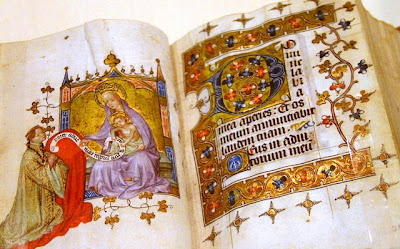 DO
mine
labia
mea aperies: Et os
meum annunciabit
laudem tuam
Deus in adiu
torium meum